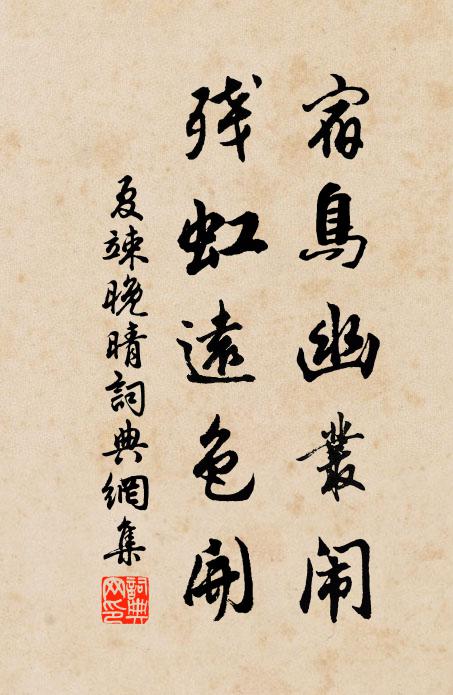 宿鳥幽叢闹
残虹遠色開
夏竦晚晴詞典網集
詞典網印